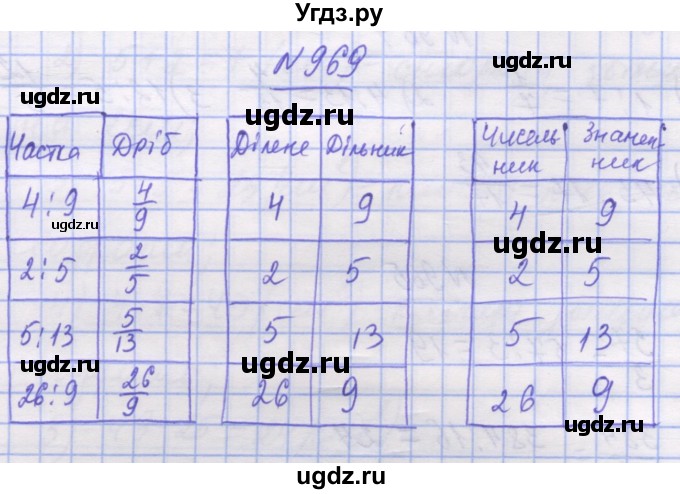 Угдз.ру
№969
ugdz.ru ugdz.ru
Частка Дріб Ділене Дільник Чисель Знамен
ник ник
4:9 4/9 4 9 4 9
ugdz.ru ugdz.ru
2:5 2/5 2 5 2 5
5:13 5/13 5 13 5 13
ugdz.ru ugdz.ru
26:9 26/9 26 9 26 9
ugdz.ru
ugdz.ru
ugdz.ru